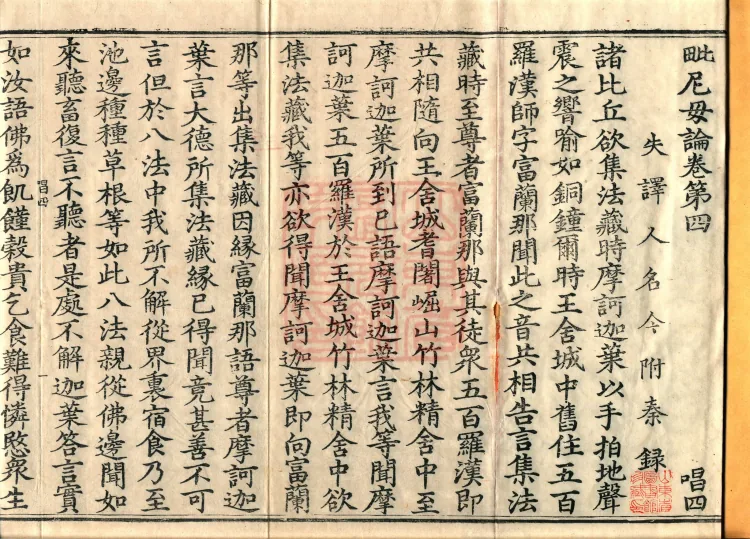 毗尼毋論卷第四 唱四
失譯人名今附秦錄
諸比丘欲集法藏時摩訶迦葉以手拍地聲
震之響喻如銅鐘爾時王舍城中舊住五百
羅漢師字富蘭那聞此之音共相告言集法
藏時至尊者富蘭那與其徒眾五百羅漢即
共相隨向王舍城耆闍崛山竹林精舍中至
摩訶迦葉所到已語摩訶迦葉言我等聞摩
訶迦葉五百羅漢於王舍城竹林精舍中欲
集法藏我等亦欲得聞摩訶迦葉即向富蘭
那等出集法藏因緣富蘭那語尊者摩訶迦
葉言大德所集法藏緣已得聞竟甚善不可
言但於八法中我所不解從界裏宿食乃至
池邊種種草根等如此八法親從佛邊聞如
來聽畜復言不聽者是處不解迦葉答言實
唱四
如汝語佛為飢饉穀貴乞食難得憐愍眾生